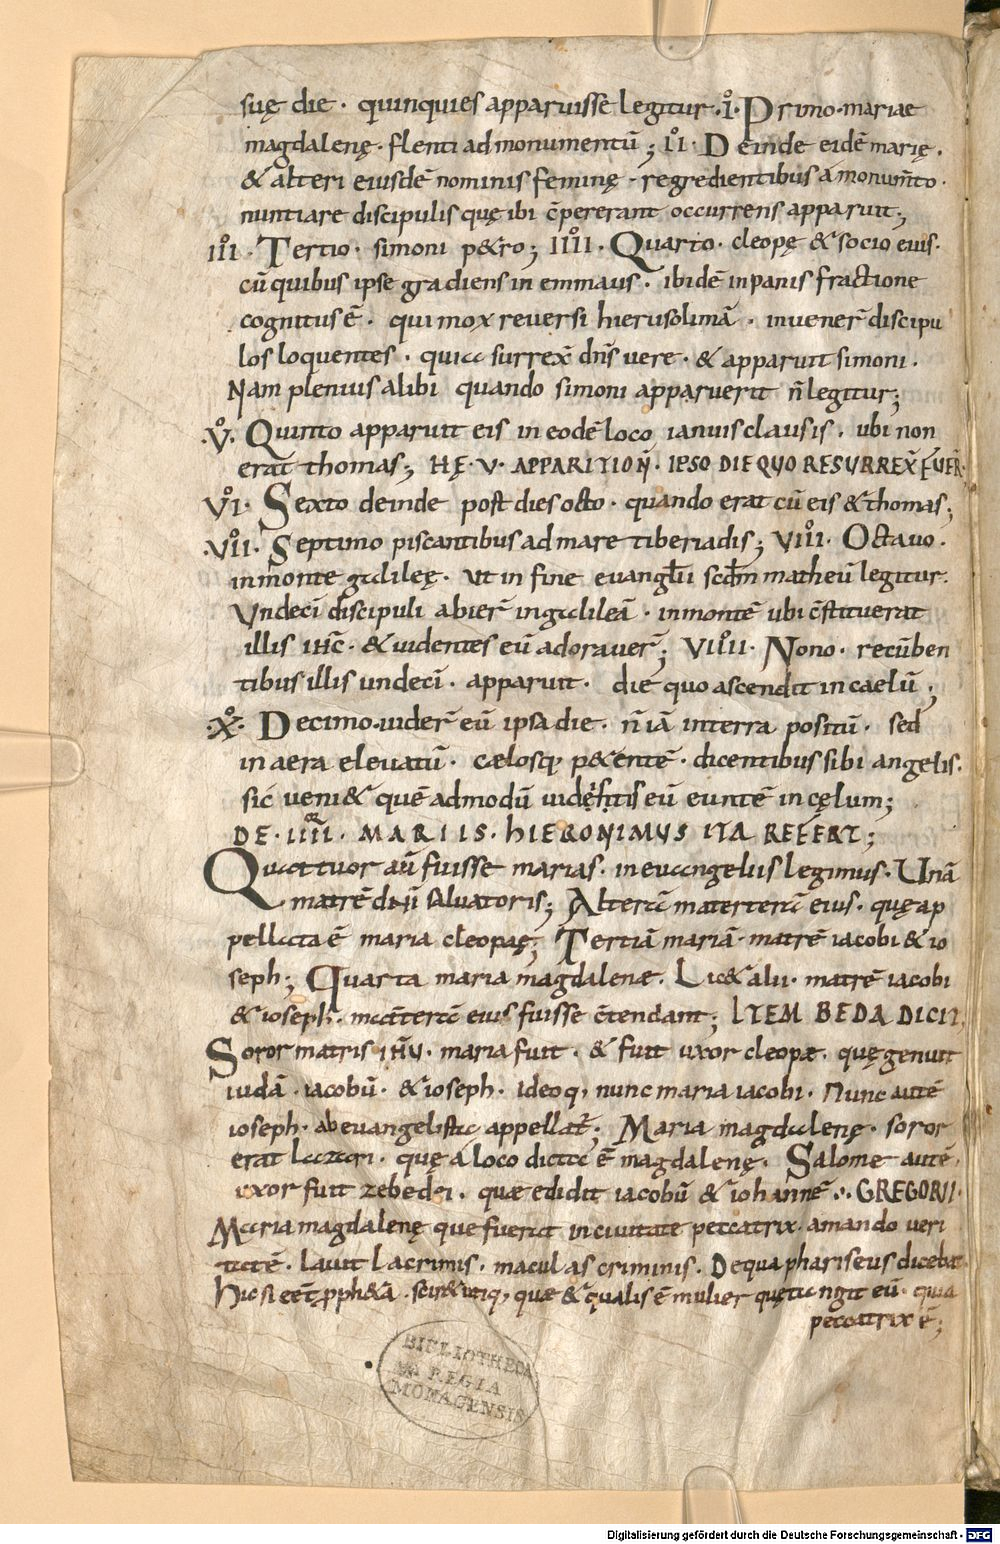 suę die · quinquies apparuisse legitur · I · Primo · mariae
magdalenę · flenti ad monumentū ; II · Deinde eidē marię ·
& alteri eiusdē nominis feminę · regredientibus a monum̄to ·
nuntiare discipulis quę ibi c̄pererant occurrens apparuit ;
III · Tertio · simoni p&ro ; IIII · Quarto · cleopę & socio eius ·
cū quibus ipse gradiens in emmaus · ibidē in panis fractione
cognitus ē · qui mox reversi hierusolimā · invener̄ discipu
los loquentes · quia surrex̄ dn̄s vere · & apparuit simoni ·
Nam plenius alibi quando simoni apparuerit n̄ legitur ;
· V · Quinto apparuit eis in eodē loco ianuis clausis · ubi non
erat thomas ; HĘ · V · APPARITION̄ · IPSO DIE QUO RESURREX̄ FUER̄ ·
VI · Sexto deinde post dies octo · quando erat cū eis & thomas ;
· VII · Septimo piscantibus ad mare tiberiadis ; VIII · Octavo ·
in monte galileę · ut in fine evangl̄ii scd̄m matheū legitur ·
Undeci̅ discipuli abier̄ in galileā · in montē ubi c̄stituerat
illis ih̄c · & videntes eū adoraver̄ ; VIIII · Nono · recūben
tibus illis undeci̅ · apparuit · die quo ascendit in caelū ;
· X · Decimo · vider̄ eū ipsa die · n̄ iā in terra positū · sed
in aera elevatū · cęlosq; p&entē · dicentibus sibi angelis ·
sic veni& quē admodū vidęistis eū euntē in cęlum ;
DE · IIII · MARIIS · HIERONIMUS ITA REFERT ;
Quattuor aū fuisse marias · in evangeliis legimus · Unā
matrē dn̄i salvatoris ; Alterā materterā eius · quę ap
pellata ē maria cleopaę ; Tertiā mariā · matrē iacobi & io
seph ; Quarta maria magdalenæ · Lic& alii · matrē iacobi
& ioseph · mat̄terā eius fuisse c̄tendant ; ITEM BEDA DICIT ;
Soror matris ih̄u · maria fuit · & fuit uxor cleopæ · quę genuit
iudā · iacobū · & ioseph · ideoq; nunc maria iacobi · Nunc autē
ioseph · ab evangelista appellat̄ ; Maria magdalenę · soror
erat lazari · quę a loco dicta ē magdalenę · Salome autē ·
uxor fuit zebedęi · quæ edidit iacobū & iohannē · GREGORII ·
Maria magdalenę que fuerat in civitate peccatrix · amando veri
tatē · lavit lacrimis · maculas criminis · De qua phariseus dicebat
Hic si eēt p̄ph&a · scir& utiq; quæ & qualis ē mulier quę tangit eū · quia
peccatrix ē ;
BIBLIOTHECA
REGIA
MONACENSIS
Digitalisierung gefördert durch die Deutsche Forschungsgemeinschaft - DFG